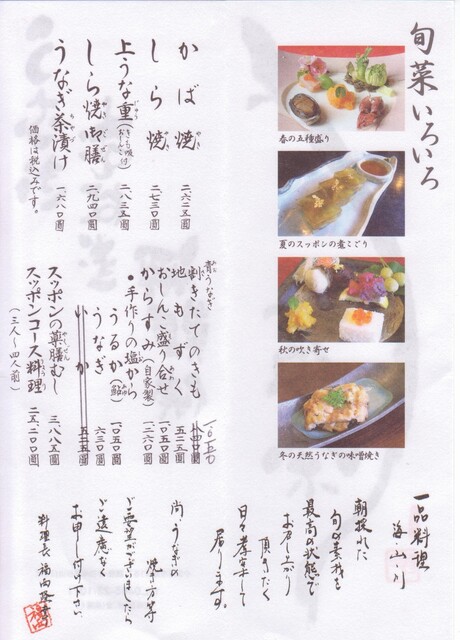 旬菜いろいろ
春の五種盛り
夏のスッポンの煮こごり
秋の吹き寄せ
冬の天然うなぎの味噌焼き
かば焼 二、六二五圓
しら焼 二、七三〇圓
上うな重(きも吸、おしんこ付) 二、八三五圓
しら焼御膳 二、九四〇圓
うなぎ茶漬け 一、六八〇圓
価格は税込みです。
青うなぎ
割きたてのきも
地もずく 五二五圓
おしんこ盛り合せ 一、〇五〇圓
からすみ(自家製) 一、二六〇圓
・手作りの塩から
うるか(鮎) 一、〇五〇圓
うなぎ 六三〇圓
いか 五二五圓
スッポンの薬膳むし 三、八八五圓
スッポンコース料理 二五、二〇〇圓
(三人~四人前)
一品料理
海・山・川
朝採れた
旬の素材を
最高の状態で
お召し上がり
頂きたく
日々孝行して
居ります。
尚、うなぎの
焼き方等
ご要望がございましたら
ご遠慮なく
お申し付け下さい。
料理長